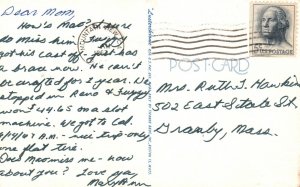 Dear Mom,
How's Mao? I sure
do miss him. Fuzzy
got his cast off, just has
a brace now. He can't
be drafted for 1 year. We
stopped in Reno & Fuzzy
won $49.65 on a slot
machine. We got to Cal.
A.M. - nice trip - only
one flat tire.
Does Mao miss me - how
about you? Love ya,
Mary Ann
POST CARD
5¢ U.S. POSTAGE
Mrs. Ruth T. Hawkins
502 East State St.
Granby, Mass.